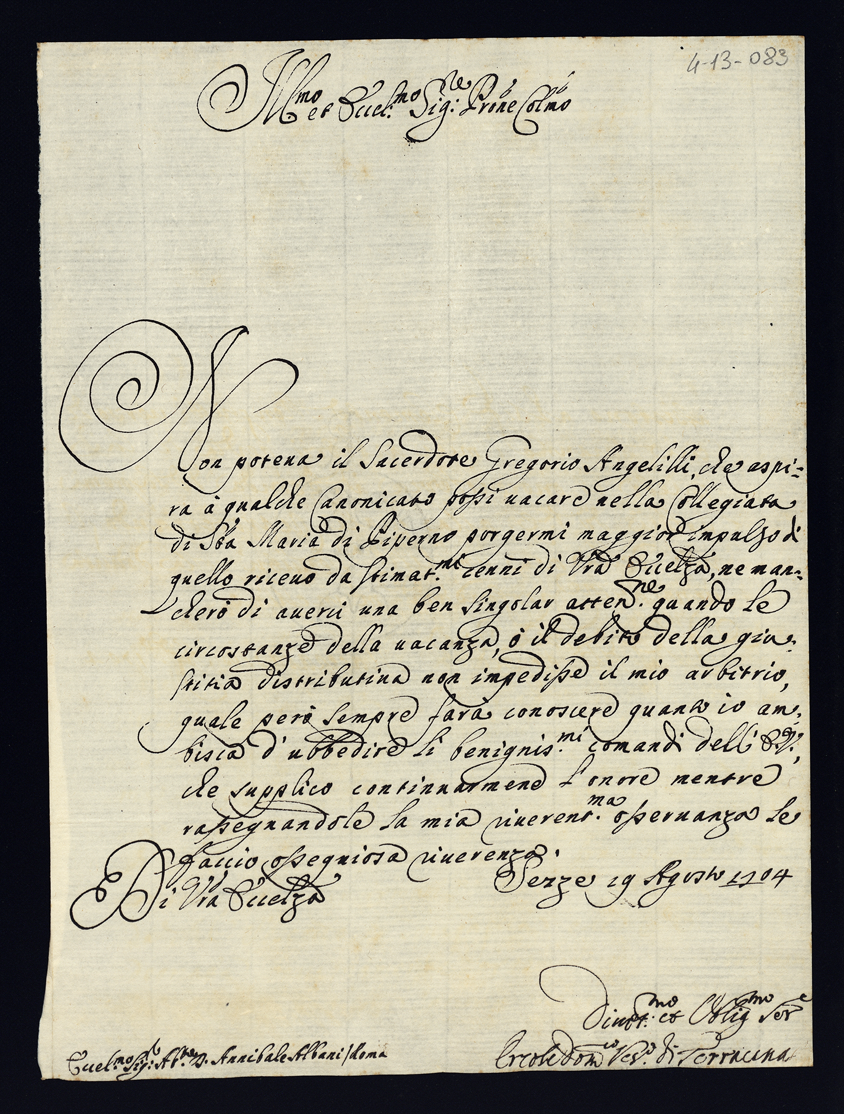 4-13-083
Ill.mo et Eccel.mo Sig.re Prône Colmo
Non poteua il Sacerdote Gregorio Angelilli, che aspi-
ra à qualche Canonicato possi uacare nella Collegiata
di Sta Maria di Piperno porgermi maggior impulso di
quello riceuo da stimat.mi cenni di Vra Eccelza, ne man-
cherò di auerci una ben singolar atten.ne quando le
circostanze della uacanza, ò il debito della giu-
stitia distributiua non impedisse il mio arbitrio,
quale però sempre farà conoscere quanto io am-
bisca d'ubbedire li benignis.mi comandi dell' E.V.,
che supplico continuarmene l'onore mentre
rassegnandole la mia riuerent.ma osseruanza le
faccio ossequiosa riuerenza.
Di Vra Eccelza
Sezze 19 Agosto 1704
Diuot.mo et Oblig.mo Ser.e
Ercole Dom.co Ves.o di Terracina
Eccel.mo Sig. Ab.te D. Annibale Albani / Roma